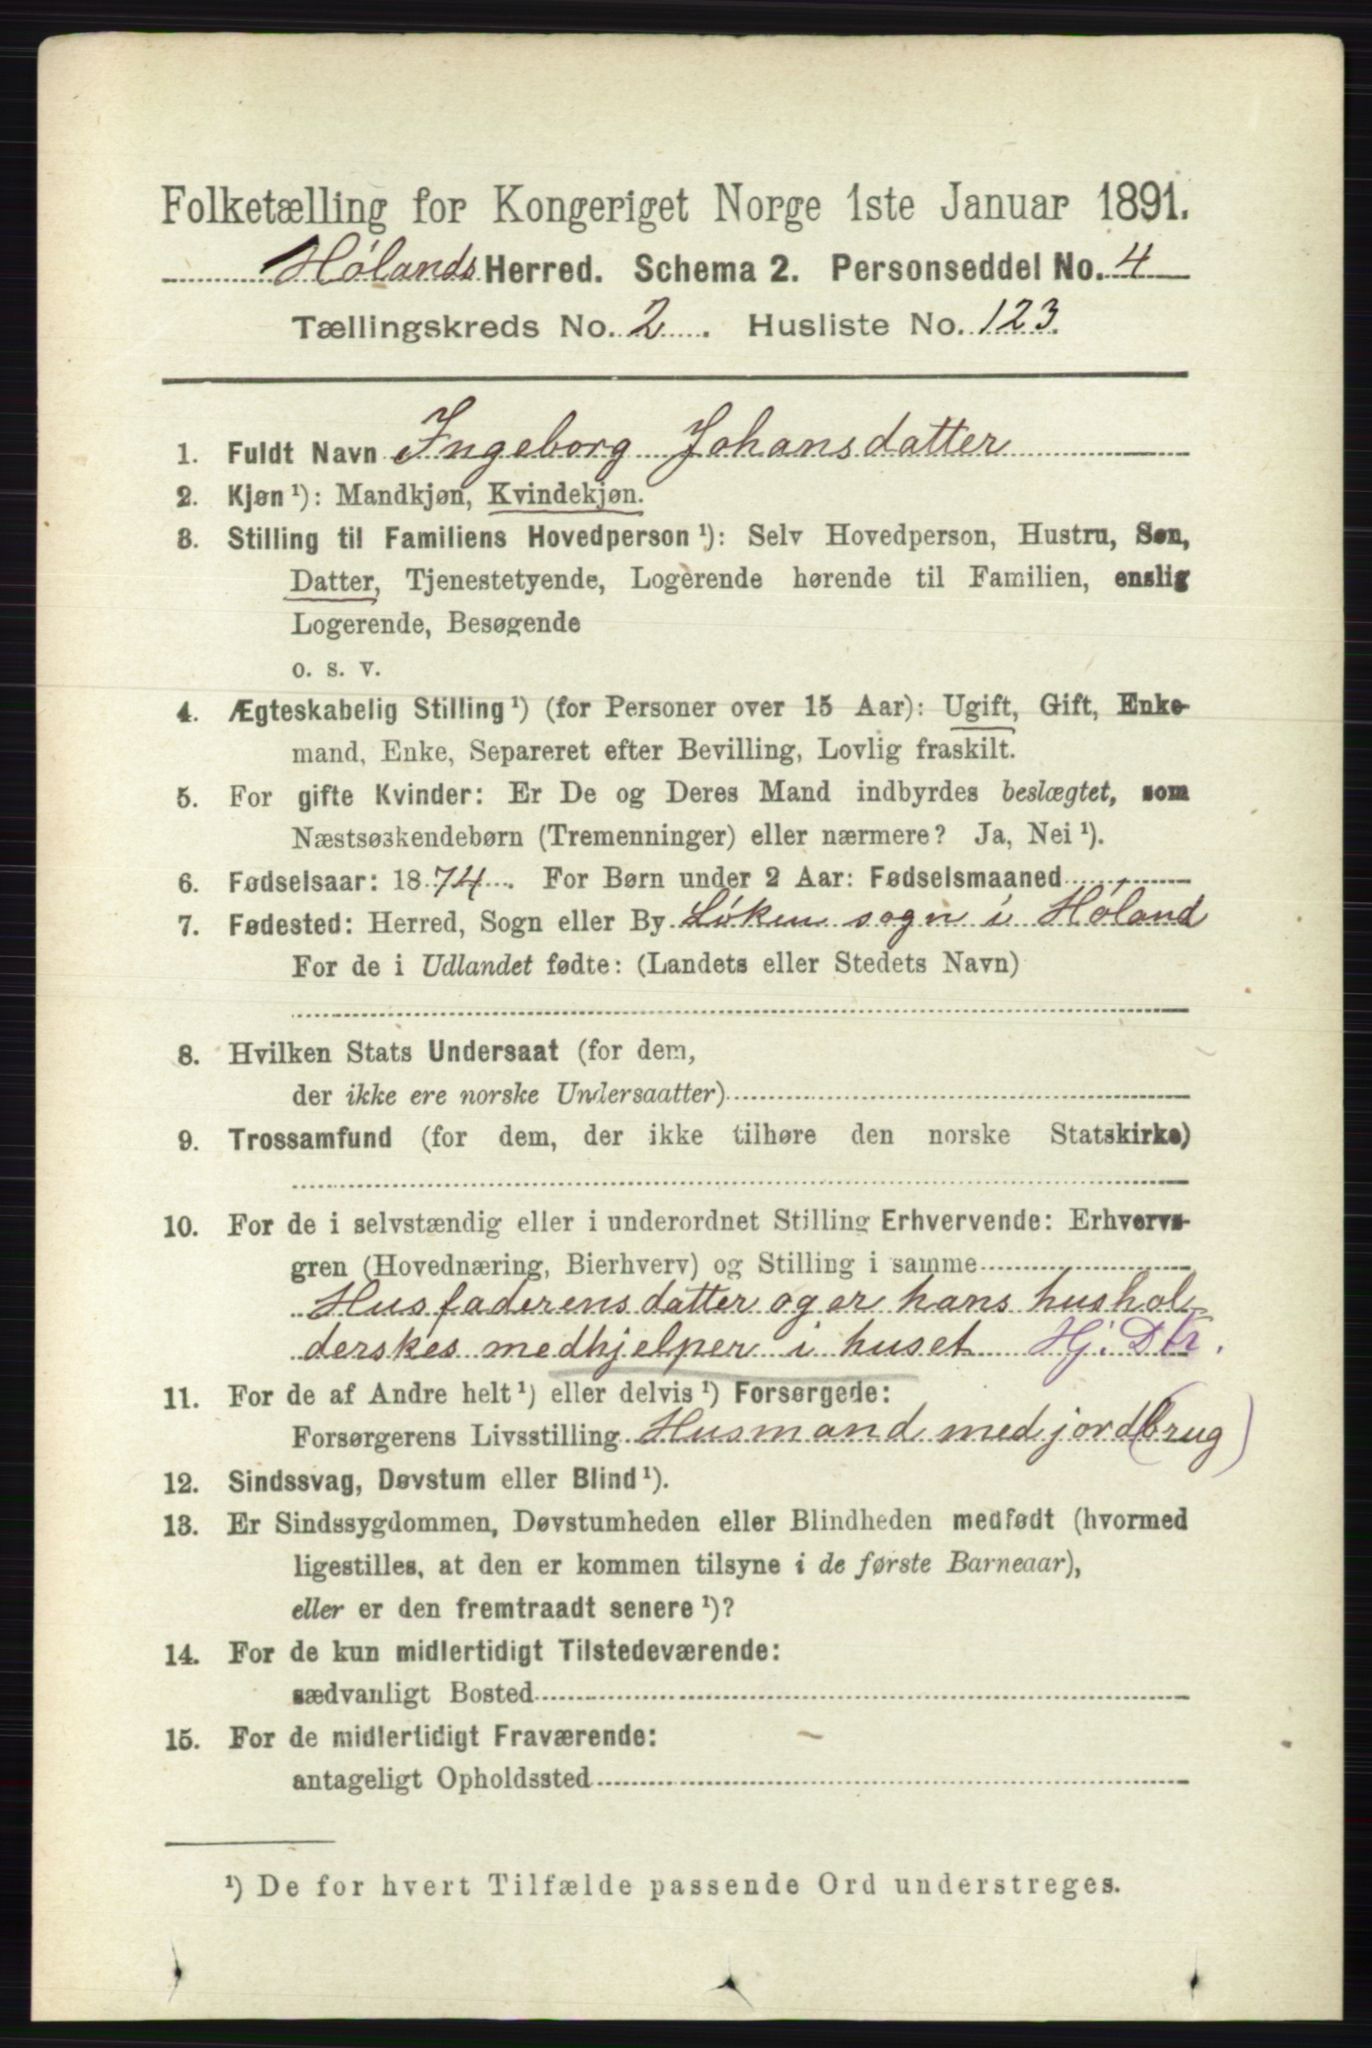 Folketælling for Kongeriget Norge 1ste Januar 1891.
Hølands Herred. Schema 2. Personseddel No. 4
Tællingskreds No. 2. Husliste No. 123.
1. Fuldt Navn Ingeborg Johansdatter
2. Kjøn ¹): Mandkjøn, Kvindekjøn.
3. Stilling til Familiens Hovedperson ¹): Selv Hovedperson, Hustru, Søn,
Datter, Tjenestetyende, Logerende hørende til Familien, enslig
Logerende, Besøgende
o. s. v.
4. Ægteskabelig Stilling ¹) (for Personer over 15 Aar): Ugift, Gift, Enke-
mand, Enke, Separeret efter Bevilling, Lovlig fraskilt.
5. For gifte Kvinder: Er De og Deres Mand indbyrdes beslægtet, som
Næstsøskendebørn (Tremenninger) eller nærmere? Ja, Nei ¹).
6. Fødselsaar: 1874. For Børn under 2 Aar: Fødselsmaaned
7. Fødested: Herred, Sogn eller By Løken sogn i Høland
For de i Udlandet fødte: (Landets eller Stedets Navn)
8. Hvilken Stats Undersaat (for dem,
der ikke ere norske Undersaatter)
9. Trossamfund (for dem, der ikke tilhøre den norske Statskirke)
10. For de i selvstændig eller i underordnet Stilling Erhvervende: Erhvervs-
gren (Hovednæring, Bierhverv) og Stilling i samme
Husfaderens datter og er hans hushol-
derskes medhjelper i huset Hj. Dtr.
11. For de af Andre helt ¹) eller delvis ¹) Forsørgede:
Forsørgerens Livsstilling Husmand med jord(brug)
12. Sindssvag, Døvstum eller Blind ¹).
13. Er Sindssygdommen, Døvstumheden eller Blindheden medfødt (hvormed
ligestilles, at den er kommen tilsyne i de første Barneaar),
eller er den fremtraadt senere ¹)?
14. For de kun midlertidigt Tilstedeværende:
sædvanligt Bosted
15. For de midlertidigt Fraværende:
antageligt Opholdssted
¹) De for hvert Tilfælde passende Ord understreges.